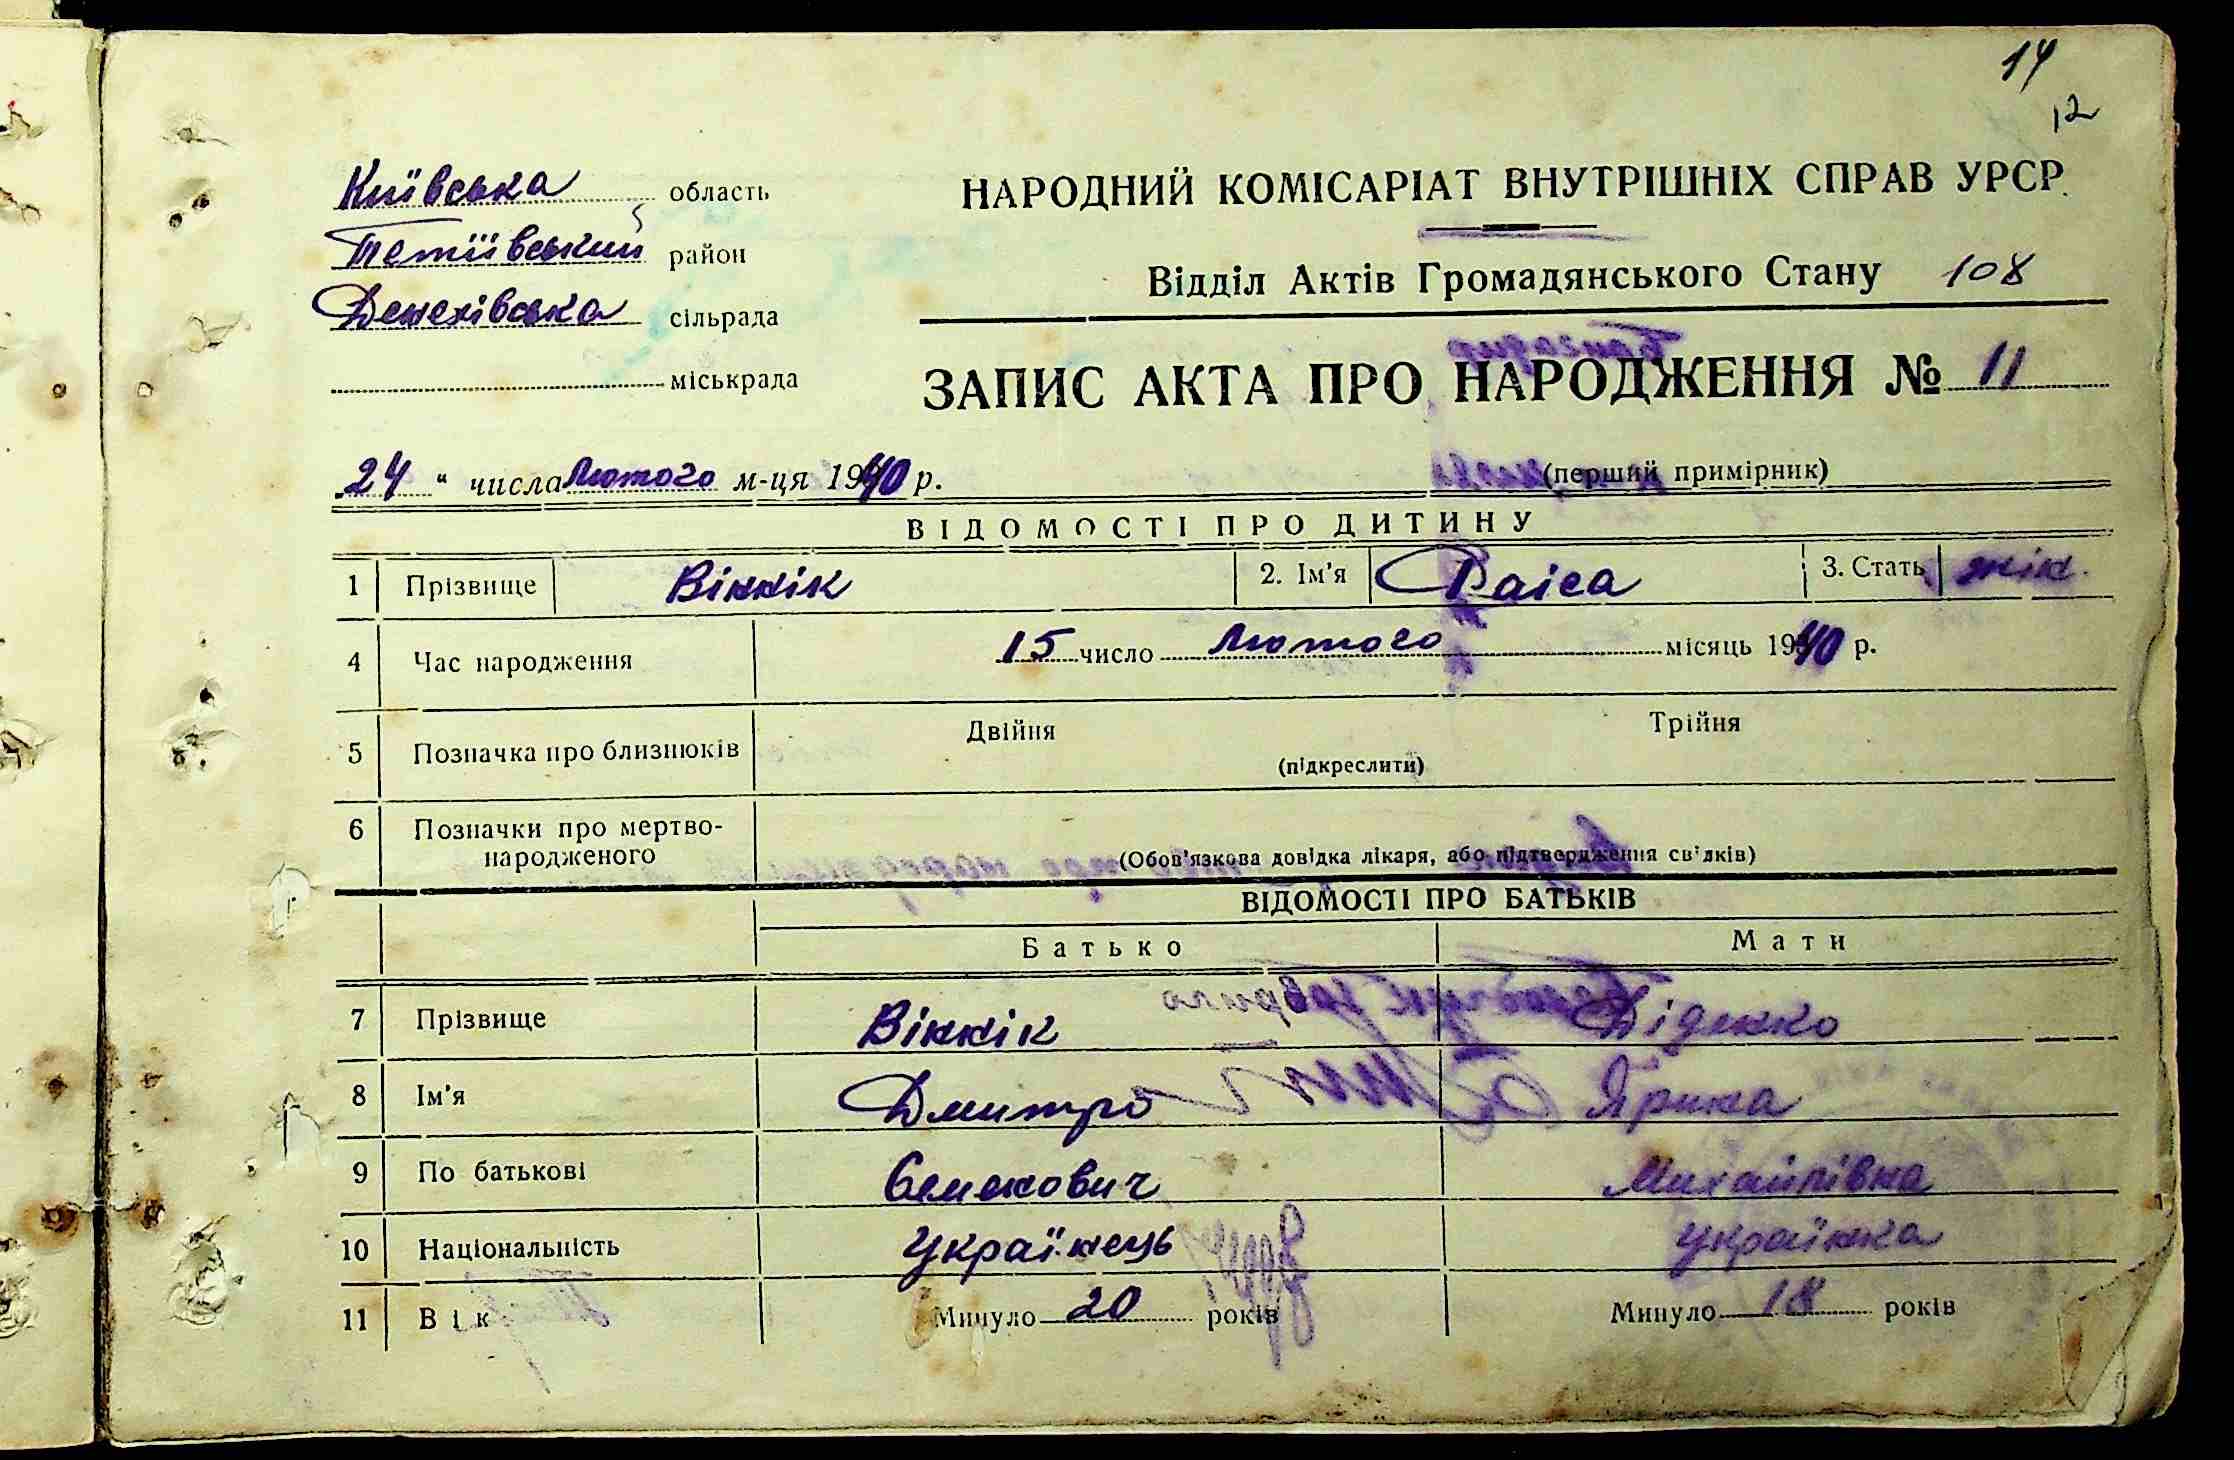 14
12
Київська область
Тетіївський район
Денехівська сільрада
міськрада
НАРОДНИЙ КОМІСАРІАТ ВНУТРІШНІХ СПРАВ УРСР.
Відділ Актів Громадянського Стану 108
ЗАПИС АКТА ПРО НАРОДЖЕННЯ № 11
24 " числа Лютого м-ця 1940 р.
(перший примірник)
ВІДОМОСТІ ПРО ДИТИНУ
1 Прізвище Віннік 2. Ім'я Раіса 3. Стать жін.
4 Час народження 15 число Лютого місяць 1940 р.
5 Позначка про близнюків Двійня Трійня
(підкреслити)
6 Позначки про мертво-
народженого (Обов'язкова довідка лікаря, або підтвердження свідків)
ВІДОМОСТІ ПРО БАТЬКІВ
Батько Мати
7 Прізвище Віннік Діденко
8 Ім'я Дмитро Ярина
9 По батькові Семенович Михайлівна
10 Національність Українець Українка
11 Вік Минуло 20 років Минуло 18 років